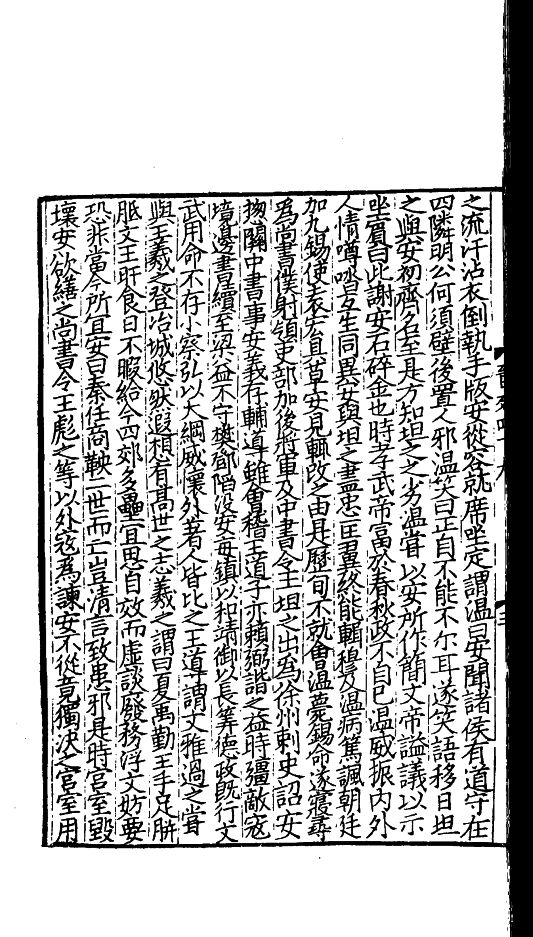 之流汗沾衣倒執手版安從容就席坐定謂溫曰安聞諸侯有道守在
四隣明公何須壁後置人邪溫笑曰正自不能不尓耳遂笑語移日坦
之與安初齊名至是方知坦之之劣溫甞以安所作簡文帝謚議以示
坐賔曰此謝安石碎金也時孝武帝富於春秋政不自己溫威振内外
人情噂𠴲互生同異安與坦之盡忠匡翼終能輯穆及溫病篤諷朝廷
加九錫使袁宏具草安見輒改之由是歷旬不就會溫薨錫命遂寢尋
爲尚書僕射領吏部加後將軍及中書令王坦之出爲徐州刺史詔安
揔關中書事安義存輔導雖會稽王道子亦賴弼諧之益時彊敵宼
境邊書續至梁益不守樊鄧陷没安每鎮以和靖御以長筭德政旣行文
武用命不存小察弘以大綱威懷外著人皆比之王導謂文雅過之甞
與王羲之登冶城悠然遐想有髙世之志羲之謂曰夏禹勤王手足胼
胝文王旰食日不暇給今四郊多壘宜思自效而虛談廢務浮文妨要
恐非當今所宜安曰秦任商鞅二世而亡豈清言致患邪是時宮室毀
壞安欲繕之尚書令王彪之等以外宼爲諫安不從竟獨決之宮室用